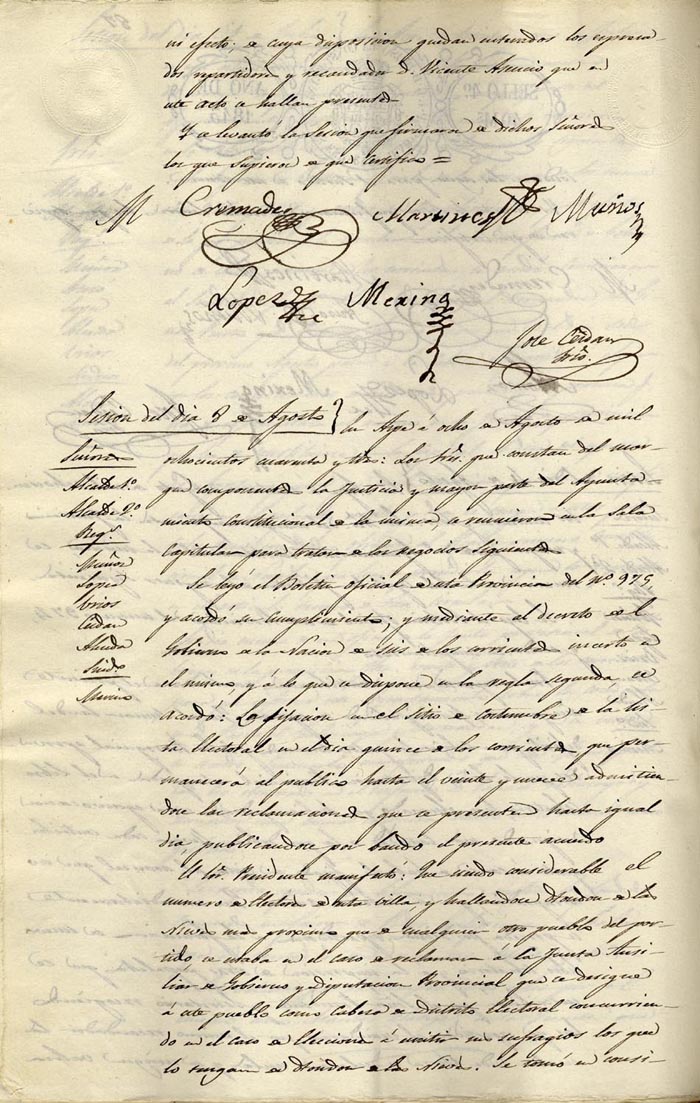 ni efecto; de cuya disposicion quedan enterados los espresa-
dos repartidores y recaudador D. Vicente Asencio que en
este acto se hallan presentes
Y se levantó la Sesion que firmaron de dichos Señores
los que supieron de que certifico =
Cremades Martinez Muños
Lopez Merino
Jose Cerdan
Srio.
Sesion del dia 8 de Agosto
En Aspe á ocho de Agosto de mil
ochocientos cuarenta y tres: Los Sres. que constan del mar-
gen componentes la Justicia y mayor parte del Ayunta-
miento constitucional de la misma se reunieron en la Sala
Capitular para tratar de los negocios siguientes
Señores
Alcalde 1º
Alcalde 2º
Regs.
Muñoz
Lopez
Cerdan
Almeda
Sindo
Merino
Se leyó el Boletin oficial de esta Provincia del Nº 975,
y acordó su cumplimiento; y mediante al decreto del
Gobierno de la Nacion de seis de los corrientes incerto en
el mismo, y á lo que se dispone en la regla segunda, se
acordó: La fijacion en el sitio de costumbre de la lis-
ta electoral en el dia quince de los corrientes que per-
manecerá al publico hasta el veinte y nueve admitien-
doce las reclamaciones que se presenten hasta igual
dia, publicandoce por bando el presente acuerdo
El Sor. Presidente manifestó: Que siendo considerable el
numero de electores de esta villa, y hallandoce Hondon de las
Nieves mas proximo que de cualquier otro pueblo del par-
tido, se estaba en el caso de reclamar á la Junta Ausi-
liar de Gobierno y diputacion Provincial que se designe
á este pueblo como Cabeza de Distrito electoral concurrien-
do en el caso de elecciones á emitir sus sufragios los que
lo tengan de Hondon de las Nieves. Se tomó en consi-